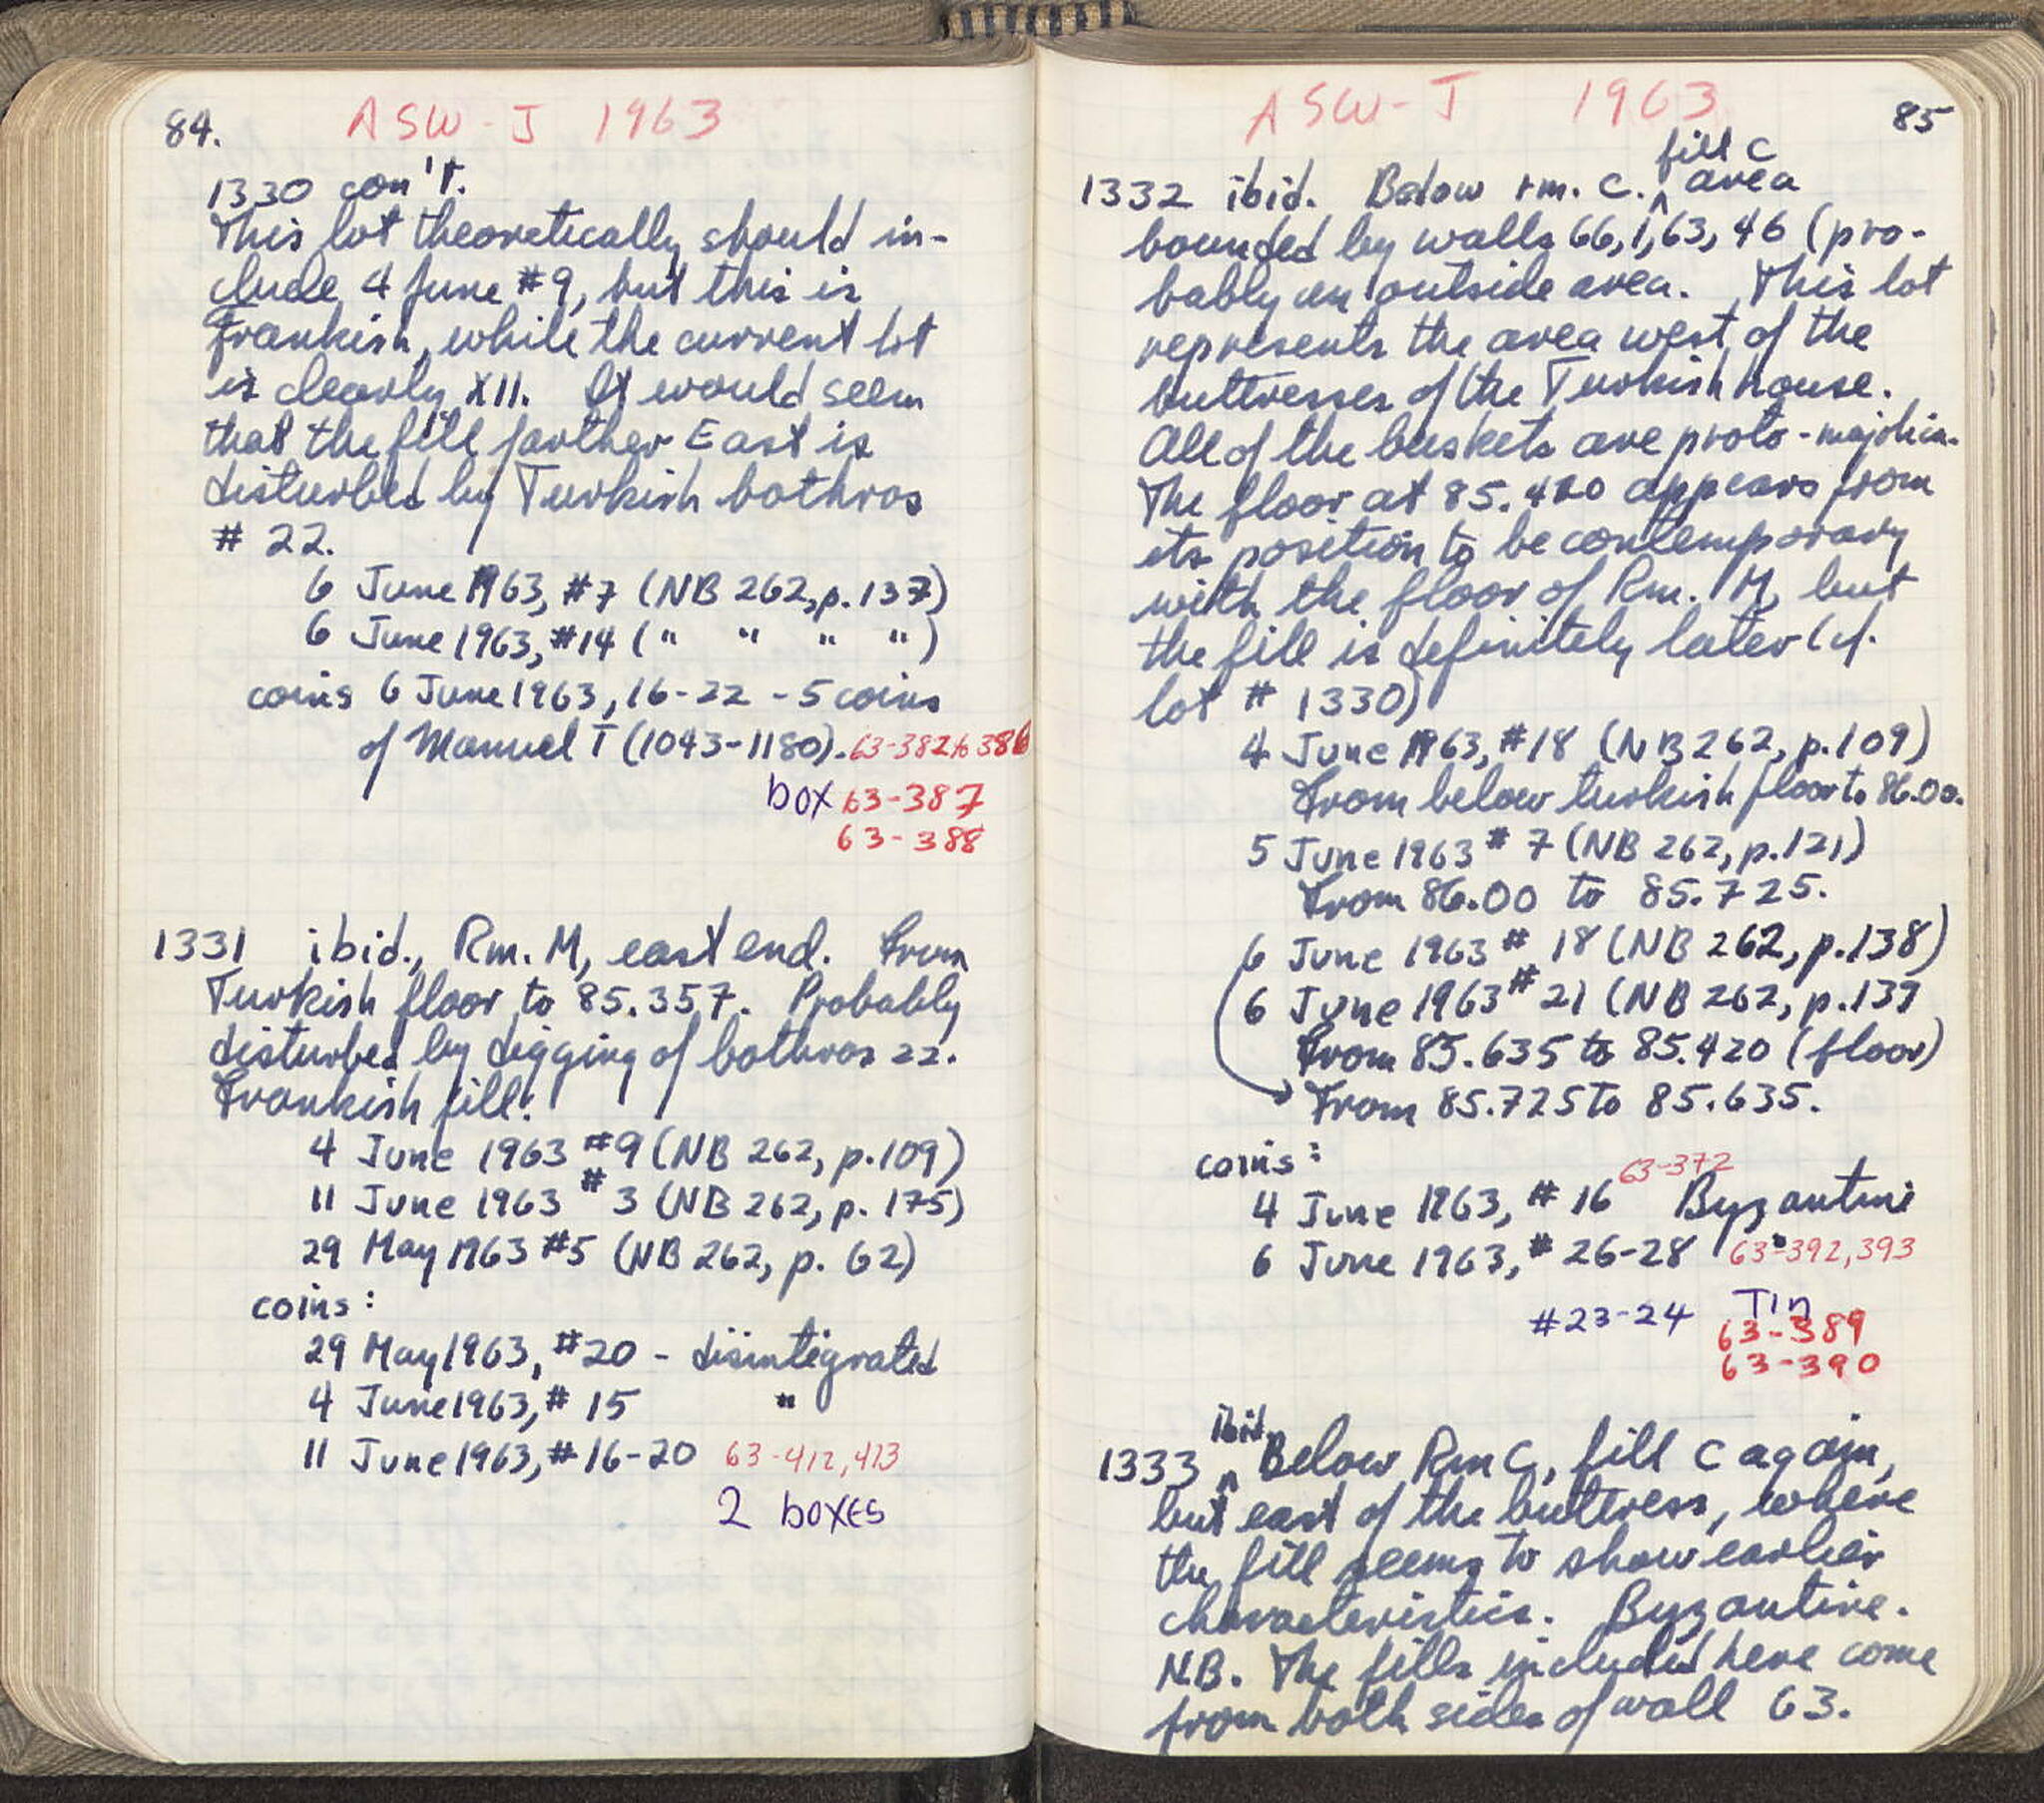 84.
ASW-J 1963
1330 con't.
This lot theoretically should in-
clude 4 June #9, but this is
Frankish, while the current lot
is clearly XII. It would seem
that the fill farther East is
disturbed by Turkish bothros
# 22.
6 June 1963, #7 (NB 262, p. 137)
6 June 1963, #14 (" " " ")
coins 6 June 1963, 16-22 - 5 coins
of Manuel I (1043-1180). 63-382 to 386
box 63-387
63-388
1331 ibid., Rm. M, east end. From
Turkish floor to 85.357. Probably
disturbed by digging of bothros 22.
Frankish fill.
4 June 1963 #9 (NB 262, p.109)
11 June 1963 #3 (NB 262, p. 175)
29 May 1963 #5 (NB 262, p. 62)
coins:
29 May 1963, #20 - disintegrated
4 June 1963, # 15 "
11 June 1963, # 16-20 63-412, 413
2 boxes
ASW-J 1963
85
fill C
1332 ibid. Below rm. C. ^ area
bounded by walls 66, 1, 63, 46 (pro-
bably an outside area. This lot
represents the area west of the
buttresses of the Turkish house.
All of the baskets are proto-majolica.
The floor at 85.420 appears from
its position to be contemporary
with the floor of Rm. M, but
the fill is definitely later (cf.
lot # 1330)
4 June 1963, #18 (NB 262, p.109)
From below turkish floor to 86.00.
5 June 1963 # 7 (NB 262, p.121)
From 86.00 to 85.725.
6 June 1963 # 18 (NB 262, p.138)
6 June 1963 # 21 (NB 262, p.137
From 85.635 to 85.420 (floor)
From 85.725 to 85.635.
coins:
63-372
4 June 1963, # 16 Byzantine
6 June 1963, # 26-28 63-392, 393
#23-24 Tin
63-389
63-390
ibid.
1333 ^ Below Rm C, fill C again,
but east of the buttress, where
the fill seems to show earlier
characteristics. Byzantine.
N.B. The fills included here come
from both sides of wall 63.